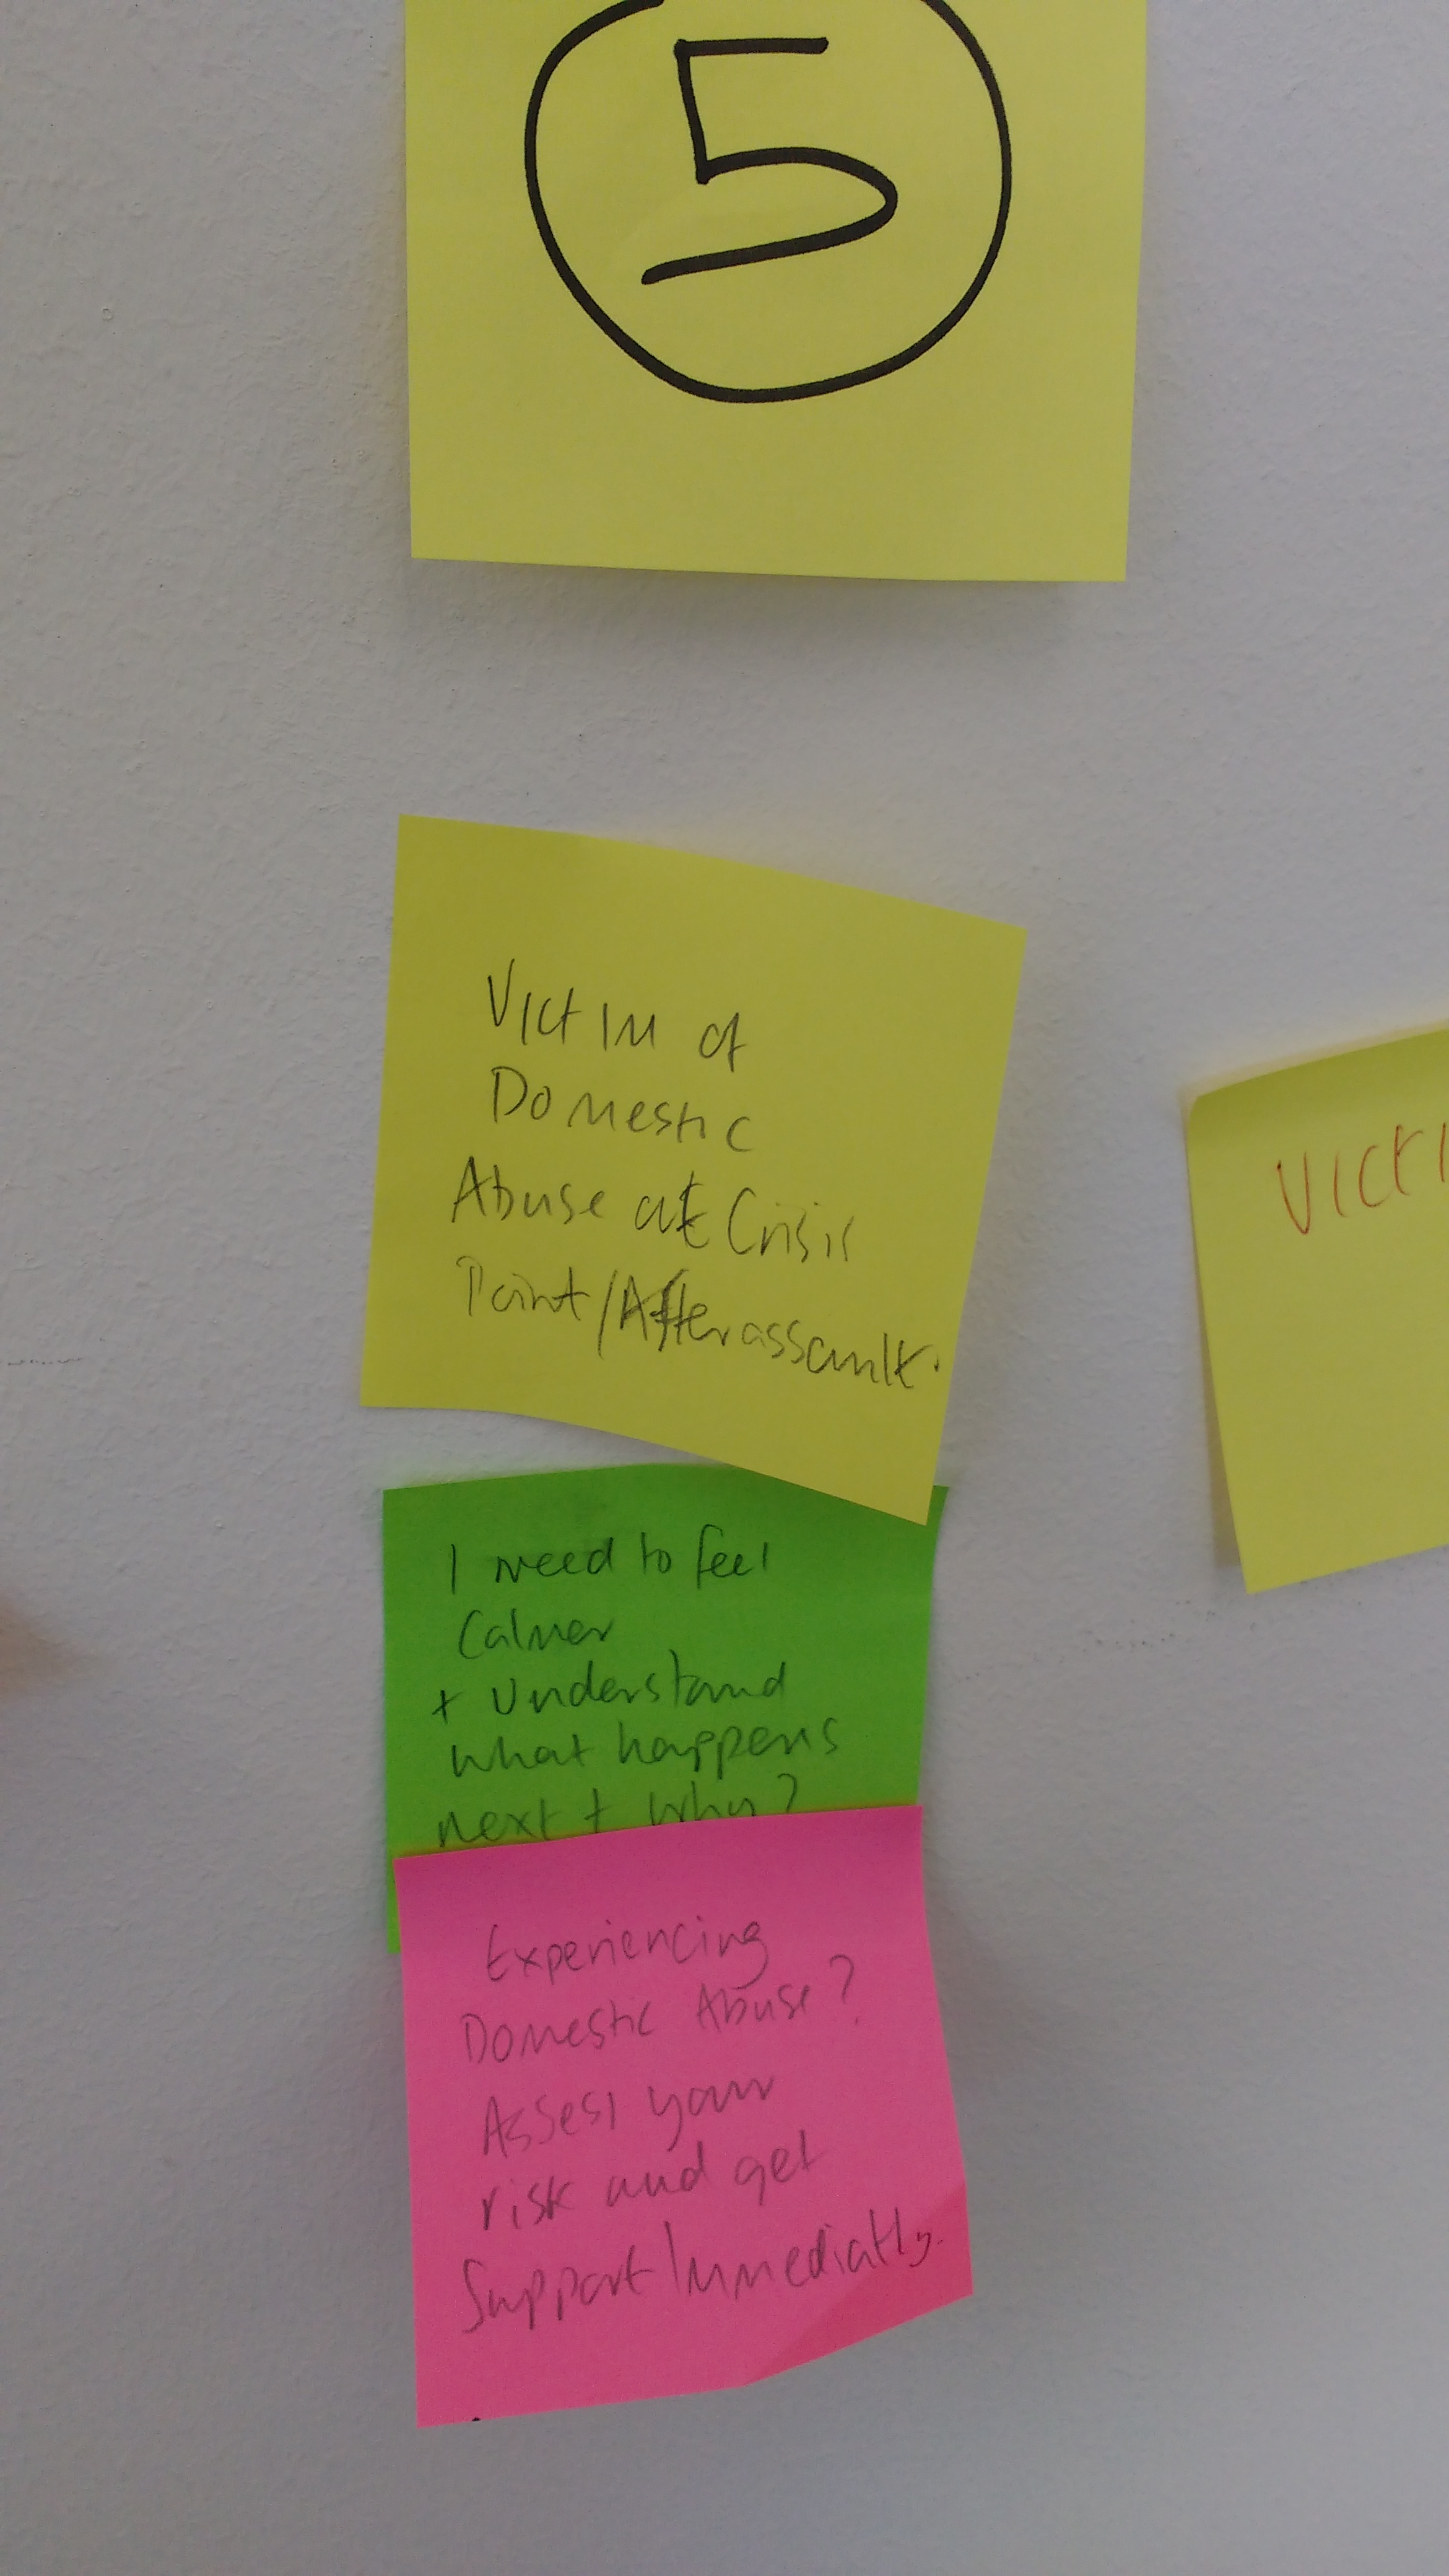 5
Victim of
Domestic
Abuse at Crisis
Point/After assault.
I need to feel
Calmer
+ Understand
what happens
next + why?
Experiencing
Domestic Abuse?
Assess your
risk and get
Support Immediatly.
Victi